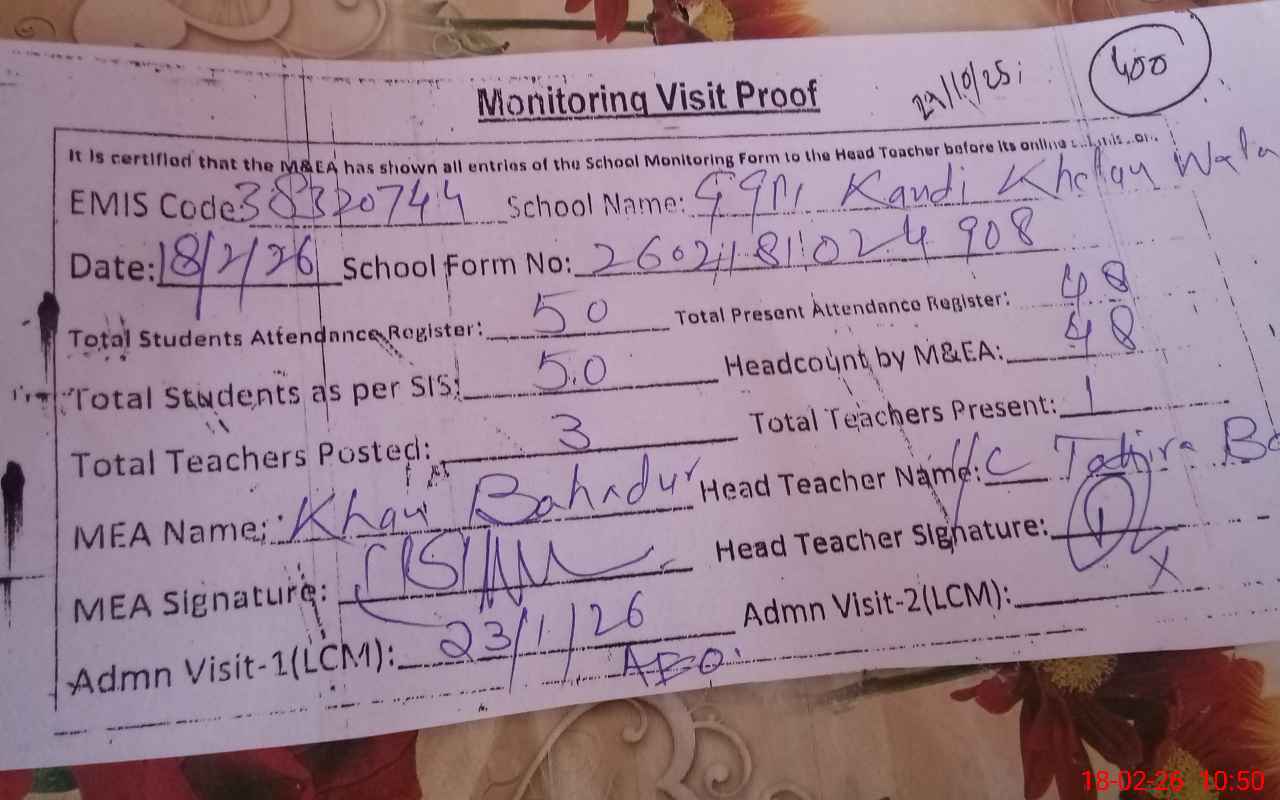 29/10/25
400
Monitoring Visit Proof
It is certified that the M&EA has shown all entries of the School Monitoring Form to the Head Teacher before its online
EMIS Code 38320744 School Name: Kandi Khelan Wala
Date: 18/2/26 School Form No: 2602181024908
Total Students Attendance Register: 50 Total Present Attendance Register: 48
Total Students as per SIS: 50 Headcount by M&EA: 48
Total Teachers Posted: 3 Total Teachers Present: 1
MEA Name: Khan Bahadur Head Teacher Name: I/C Tahira
MEA Signature: Head Teacher Signature:
Admn Visit-1(LCM): 23/1/26 Admn Visit-2(LCM): X
AEO
18-02-26 10:50